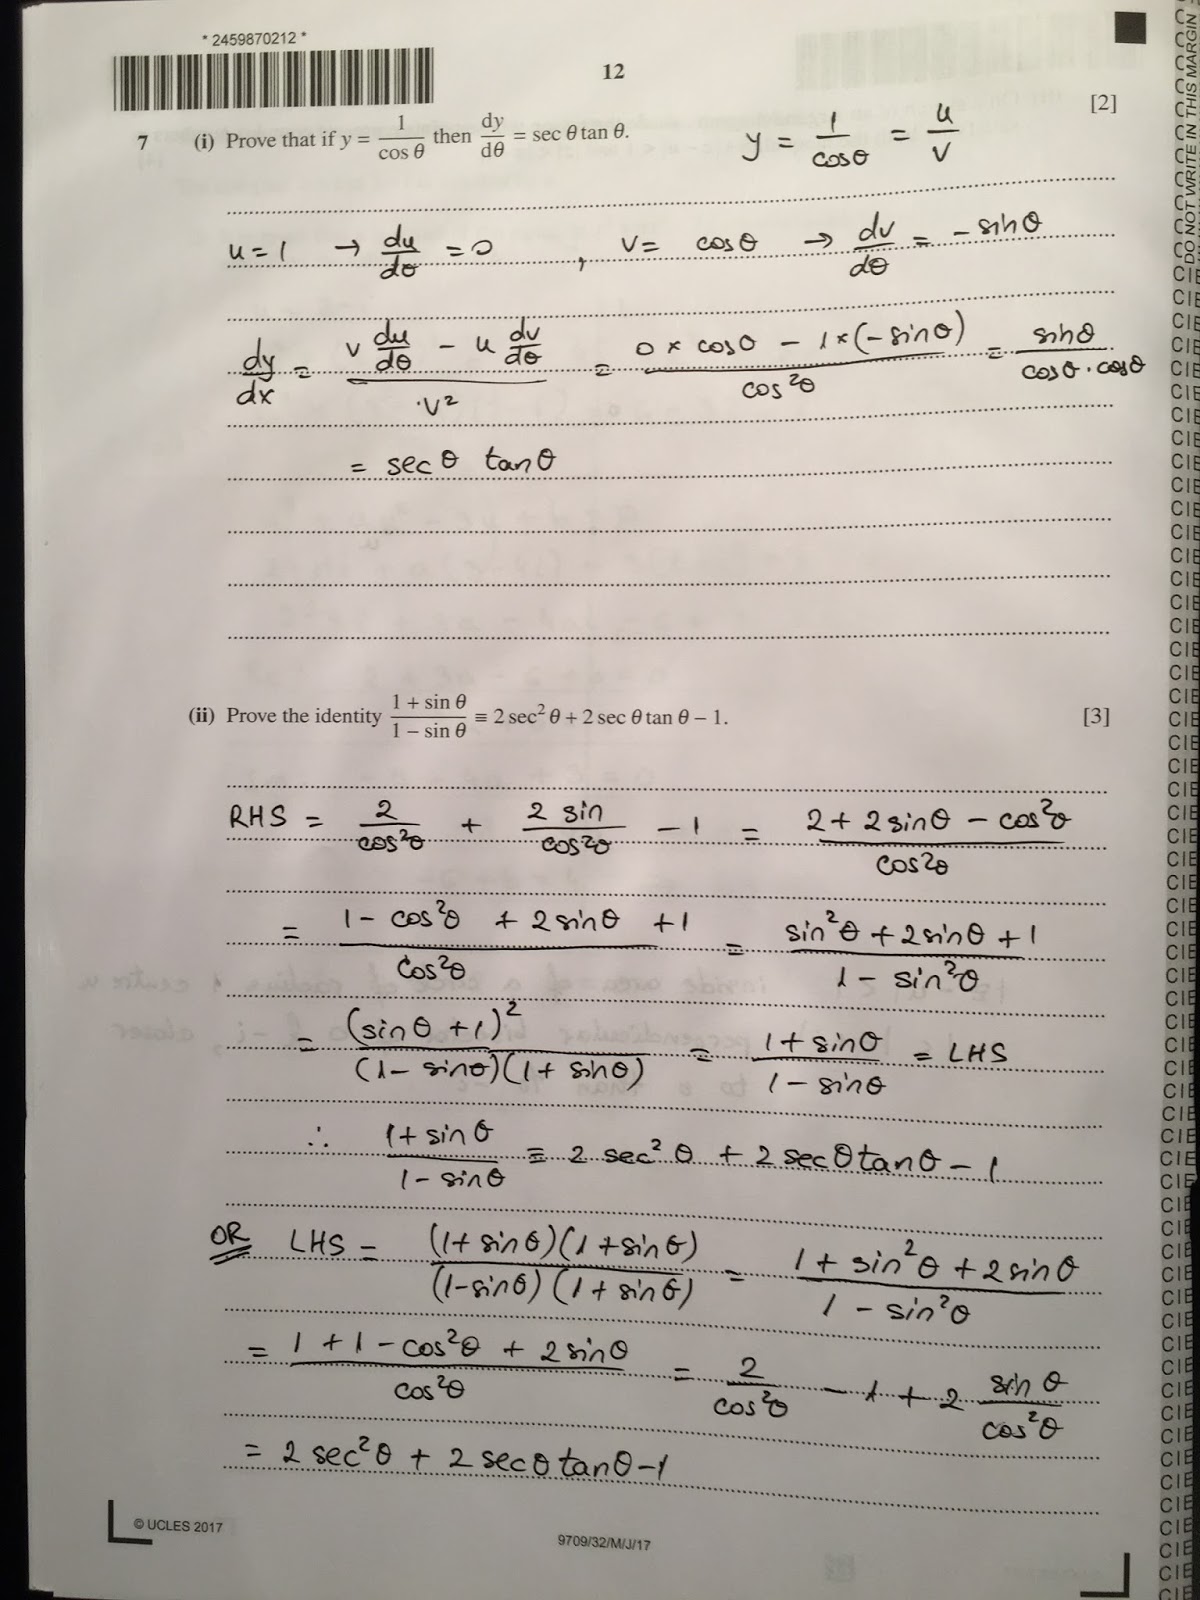 * 2459870212 *
12
7 (i) Prove that if y = 1/cos θ then dy/dθ = sec θ tan θ. [2]
y = 1/cosθ = u/v
u = 1 → du/dθ = 0 , v = cosθ → dv/dθ = - sinθ
dy/dx = (v du/dθ - u dv/dθ)/v² = (0 × cosθ - 1×(-sinθ))/cos²θ = sinθ/(cosθ . cosθ)
= secθ tanθ
(ii) Prove the identity (1 + sin θ)/(1 − sin θ) ≡ 2 sec² θ + 2 sec θ tan θ − 1. [3]
RHS = 2/cos²θ + 2 sin/cos²θ - 1 = (2 + 2 sinθ - cos²θ)/cos²θ
= (1 - cos²θ + 2 sinθ + 1)/cos²θ = (sin²θ + 2 sinθ + 1)/(1 - sin²θ)
= (sinθ + 1)²/((1 - sinθ)(1 + sinθ)) = (1 + sinθ)/(1 - sinθ) = LHS
∴ (1 + sinθ)/(1 - sinθ) ≡ 2 sec²θ + 2 secθ tanθ - 1
OR LHS = ((1 + sinθ)(1 + sinθ))/((1 - sinθ)(1 + sinθ)) = (1 + sin²θ + 2 sinθ)/(1 - sin²θ)
= (1 + 1 - cos²θ + 2 sinθ)/cos²θ = 2/cos²θ - 1 + 2 sinθ/cos²θ
= 2 sec²θ + 2 secθ tanθ - 1
© UCLES 2017
9709/32/M/J/17
DO NOT WRITE IN THIS MARGIN